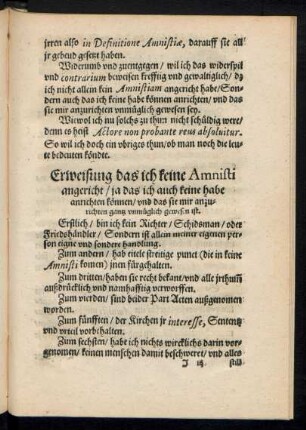 jrren also in Definitione Amnistiæ, darauff sie all
jr gebend gesetzt haben.
Widerumb vnd zuentgegen / wil ich das widerspil
vnd contrarium beweisen kreffrig vnd gewaltiglich / dz
ich nicht allein kein Amnistiam angericht habe / Son-
dern auch das ich keine habe können anrichten / vnd das
sie mir anzurichten vnmüglich gewesen sey.
Wiewol ich nu solchs zu thun nicht schüldig were/
denn es heist Actore non probante reus absoluitur.
So wil ich doch ein vbriges thun / ob man noch die leu-
te bedeuten köndte.
Erweisung das ich keine Amnisti
angericht / ja das ich auch keine habe
anrichten können / vnd das sie mir anzu-
richten gantz vnmüglich gewesen ist.
Erstlich / bin ich kein Richter / Schidsman / oder
Fridshändler / Sondern ist allein meiner eigenen per-
son eigne vnd sondere handlung.
Zum andern / hab ich etliche streitige punct (die in keine
Amnisti komen) jnen fürgehalten.
Zum dritten / haben sie recht bekant / vnd alle jrthum
außdrücklich vnd namhafftig verworffen.
Zum vierden / sind beider Part Acten außgenomen
worden.
Zum fünfften / der Kirchen jr interesse, Sententz
vnd vrteil vorbehalten.
Zum sechsten / habe ich nichts wircklichs darin vor-
genomen / keinen menschen damit beschweret / vnd alles
J ij still